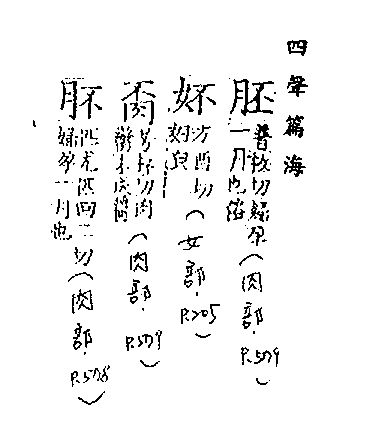 四聲篇海
胚 普枚切婦孕一月也俗（肉部．P.579）
妚 方酉切（女部．P.205）
芳杯切肉（肉部．P.579）
肧 匹尤匹回二切婦孕一月也（肉部．P.578）